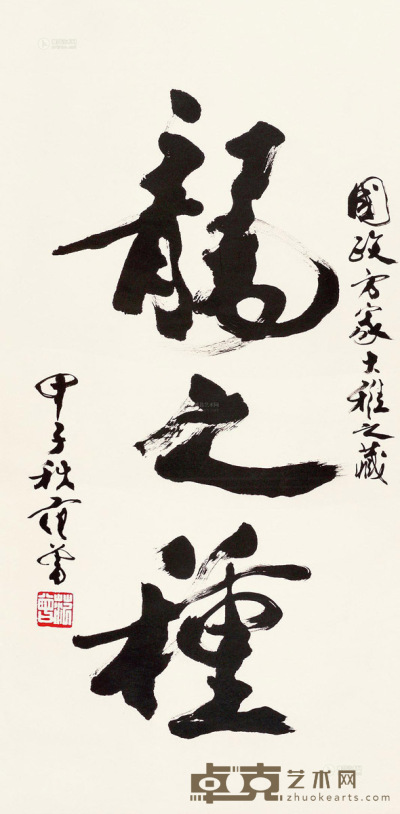 國政方家大雅之藏
龍之種
甲子秋 范曾
卓克艺术网
zhuokearts.com